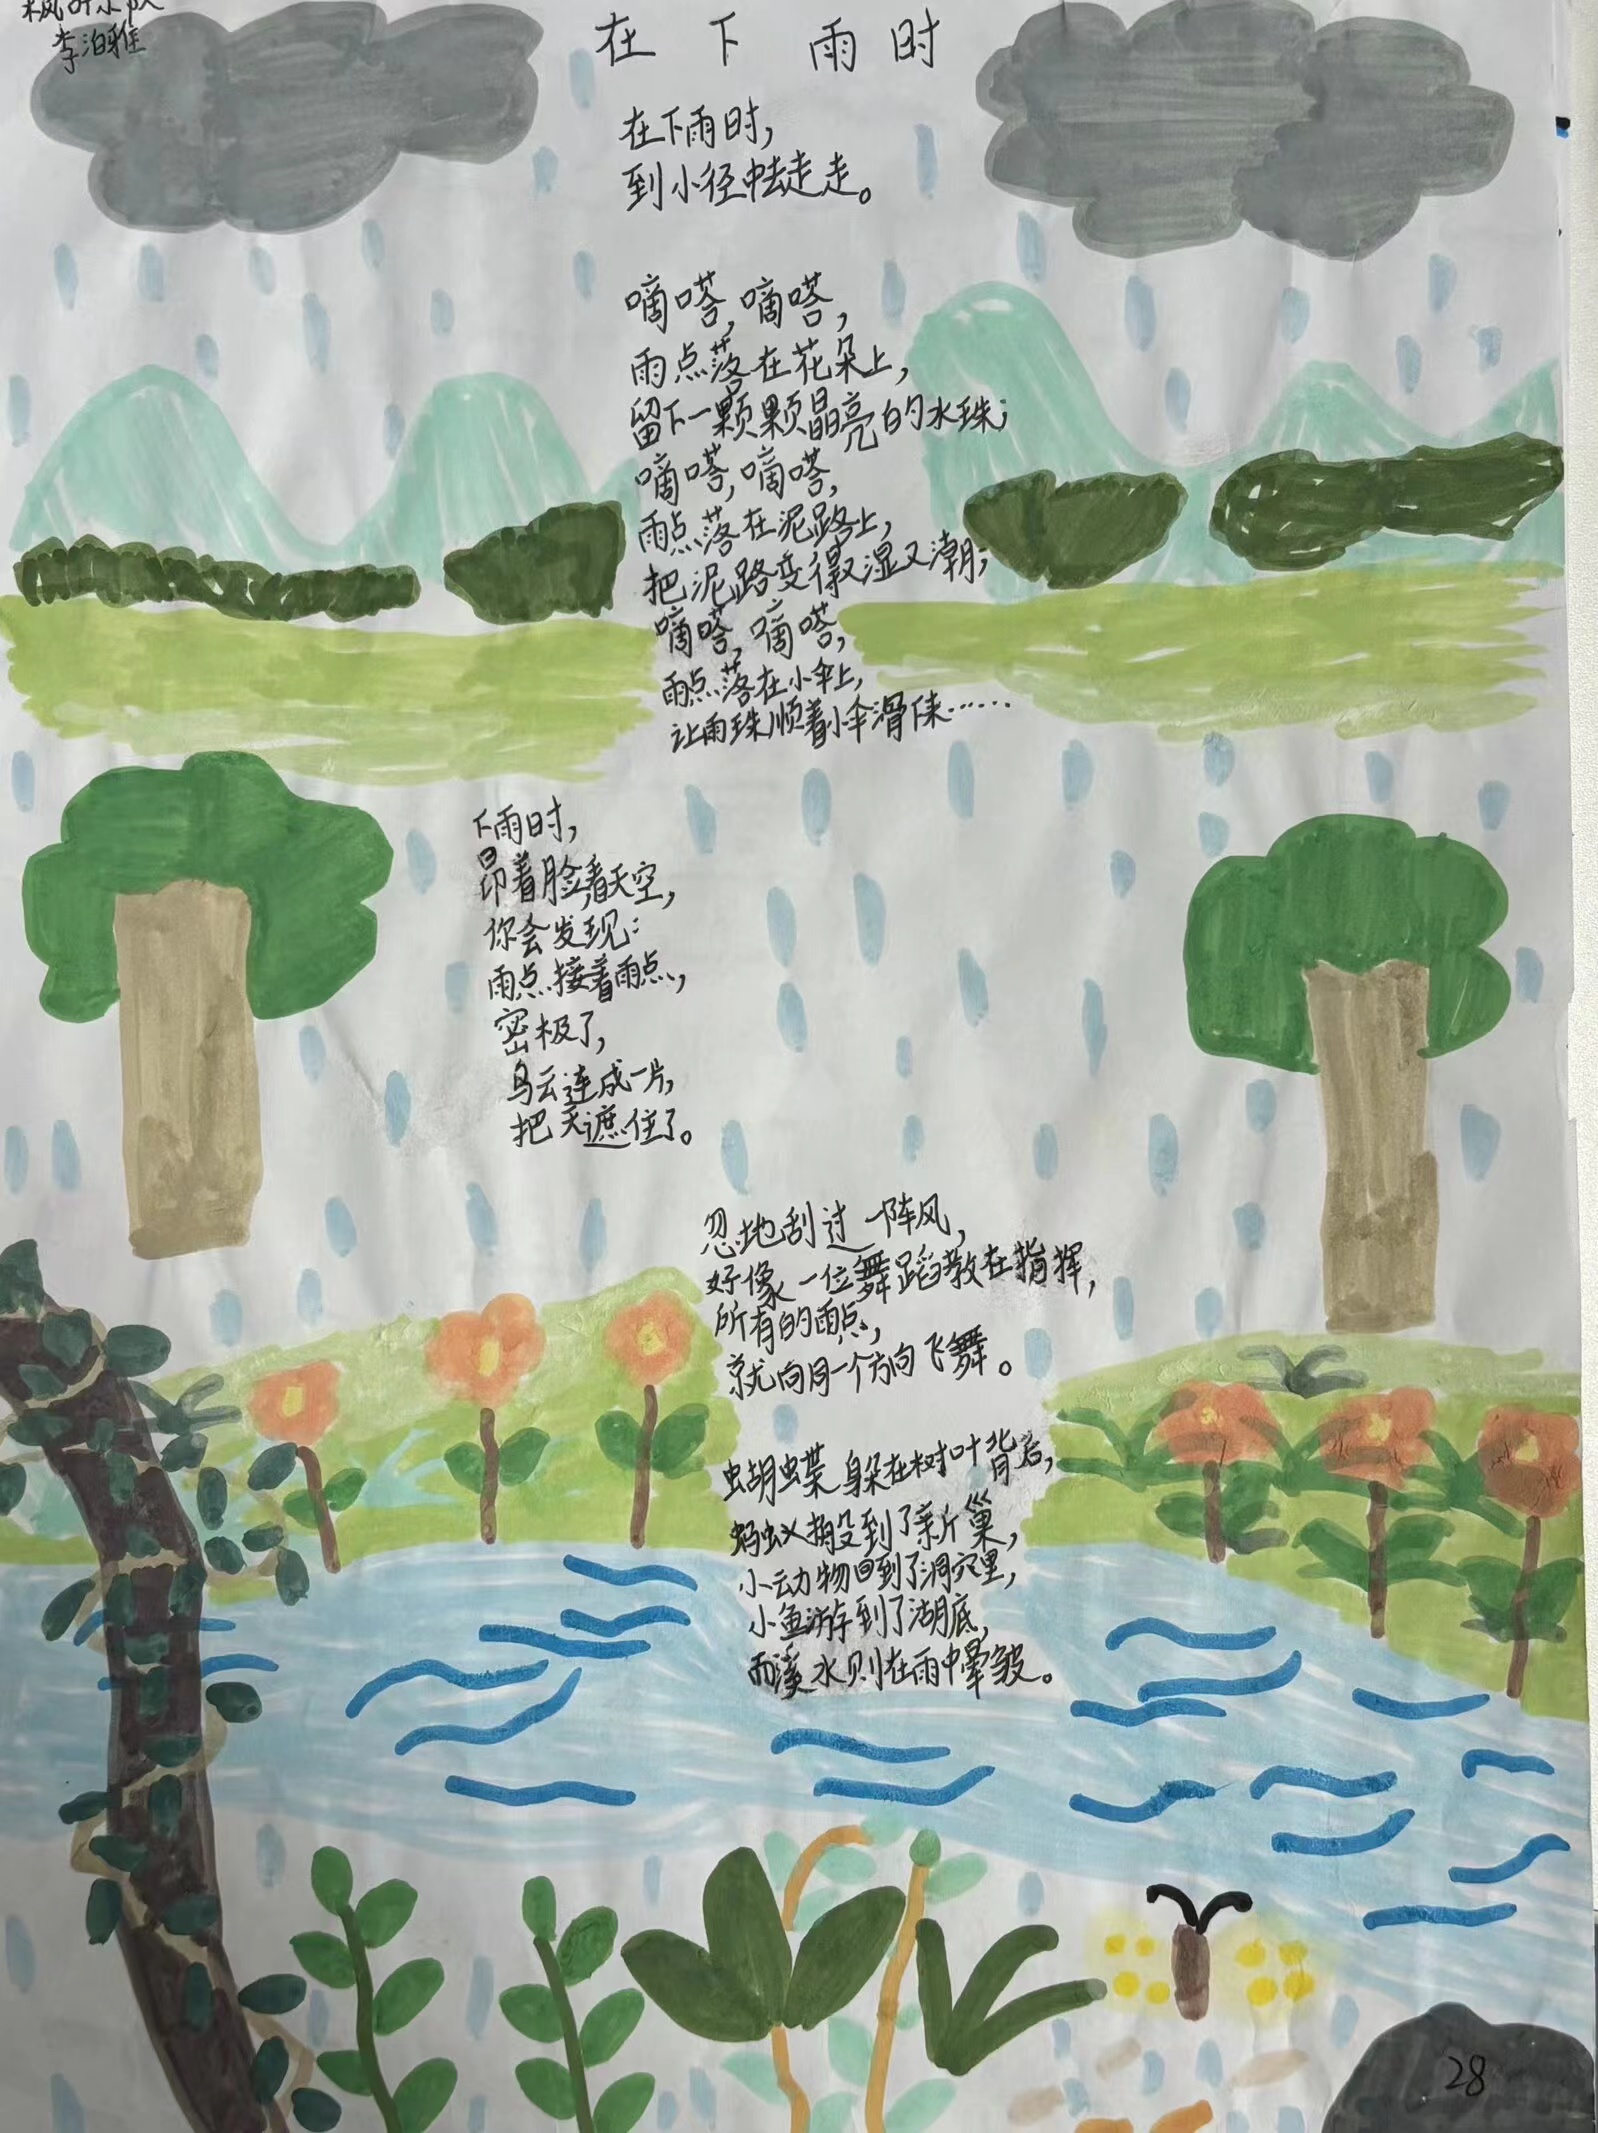 枫叶小队
李泊雅
在下雨时
在下雨时，
到小径中去走走。
嘀嗒，嘀嗒，
雨点落在花朵上，
留下一颗颗晶亮的水珠；
嘀嗒，嘀嗒，
雨点落在泥路上，
把泥路变得又湿又潮；
嘀嗒，嘀嗒，
雨点落在小伞上，
让雨珠顺着小伞滑下来……
下雨时，
昂着脸看天空，
你会发现：
雨点接着雨点，
密极了，
乌云连成一片，
把天遮住了。
忽地刮过一阵风，
好像一位舞蹈教在指挥，
所有的雨点，
就向同一个方向飞舞。
蝴蝶躲在树叶背后，
蚂蚁搬到了新巢，
小动物回到了洞穴里，
小鱼游到了湖底，
而溪水则在雨中晕皱。
28